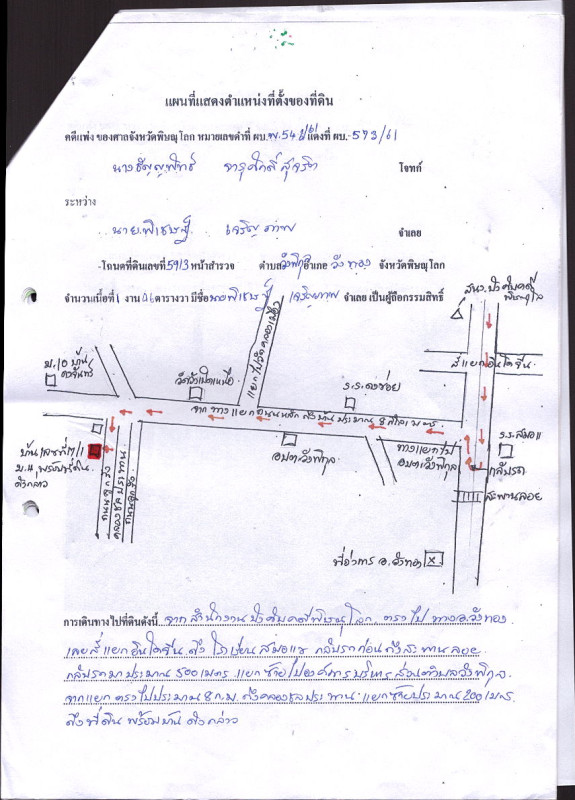 แผนที่แสดงตำแหน่งที่ตั้งของที่ดิน
คดีแพ่ง ของศาลจังหวัดพิษณุโลก หมายเลขดำที่ ผบ.พ.54 แดงที่ ผบ. 593/61
โจทก์
ระหว่าง
นายพิเชษฐ์ เจริญภาพ จำเลย
โฉนดที่ดินเลขที่ 5913 หน้าสำรวจ ตำบลวังพิกุล อำเภอ วังทอง จังหวัดพิษณุโลก
จำนวนเนื้อที่ 1 งาน 06 ตารางวา มีชื่อ นายพิเชษฐ์ เจริญภาพ จำเลย เป็นผู้ถือกรรมสิทธิ์
สนง.บังคับคดี
พิษณุโลก
แยกไปวัดคลองเมือง
สี่แยกอินโดจีน
ม.10 บ้าน
ดงจันทร์
ร.ร.ดงข่อย
จาก ทางแยกถนนหลัก ถึงบ้านประมาณ 8 กิโลเมตร
ร.ร.สมอแข
บ้านเลขที่ 171/1
ม.11 พร้อมที่ดิน
ดังกล่าว
ถนนลูกรัง
คลองชลประทาน
ถนนลูกรัง
อบต.วังพิกุล
ทางแยกไป
อบต.วังพิกุล
กลับรถ
สะพานลอย
ที่ว่าการ อ.วังทอง
การเดินทางไปที่ดินดังนี้ จากสำนักงานบังคับคดีพิษณุโลก ตรงไป ทางอ.วังทอง
เลยสี่แยกอินโดจีน ถึง โรงเรียนสมอแข กลับรถก่อนถึงสะพานลอย
กลับรถมาประมาณ 500 เมตร แยกซ้ายไปองค์การบริหารส่วนตำบลวังพิกุล
จากแยก ตรงไปประมาณ 8 ก.ม. ถึงคลองชลประทาน แยกซ้ายประมาณ 200 เมตร
ถึงที่ดิน พร้อมบ้าน ดังกล่าว